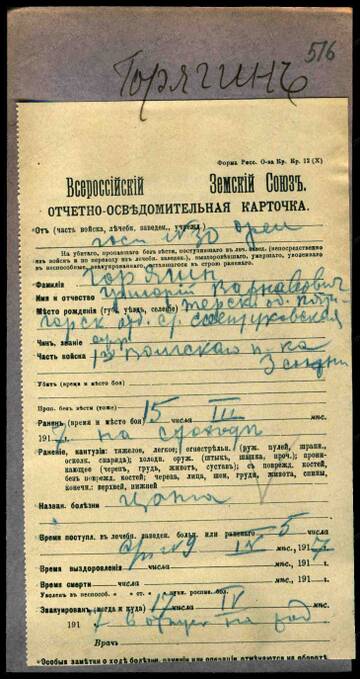 516
Горягинъ
Форма Росс. О-ва Кр. Кр. 12 (X)
Всероссійскій Земскій Союзъ.
ОТЧЕТНО-ОСВѢДОМИТЕЛЬНАЯ КАРТОЧКА.
Отъ (часть войска, лѣчебн. заведен., учрежд.)
госп №30 Орел
На убитаго, пропавшаго безъ вѣсти, поступившаго въ леч. завед. (непосредственно
изъ войскъ и по переводу изъ лечебн. заведен.), выздоровѣвшаго, умершаго, уволеннаго
въ неспособные, эвакуированнаго, оставшагося въ строю раненаго.
Фамилія Горягин
Имя и отчество Григорій
Мѣсто рожденія (губ., уѣздъ, селеніе) Терск об. Пяти
горск
Чинъ, званіе
Часть войска 13 п-ка
Убитъ (время и мѣсто боя)
Проп. безъ вѣсти (тоже)
Раненъ (время и мѣсто боя) 15 числа III мѣс.
1917 на
Раненіе, кантузія: тяжелое, легкое; огнестрѣльн. (руж. пулей, шрапн.,
осколк. снаряда); холодн. оруж. (штыкъ, шашка, проч.); проника-
ющее (черепъ, грудь, животъ, суставъ); съ поврежд. костей,
безъ поврежд. костей; черепа, лица, шеи, груди, живота, спины,
конечн.: верхней, нижней
Назван. болѣзни Цынга
Время поступл. въ лечебн. завед. больн. или раненаго 5 числа
IV мѣс., 1917
Время выздоровленія числа мѣс., 191 г.
Время смерти числа мѣс., 191 г.
Эвакуированъ (когда и куда) 17 IV мѣс.
1917 в отпуск на
Врачъ
*Особыя замѣтки о ходѣ болѣзни, раненія или операціи отмѣчаются на оборотѣ